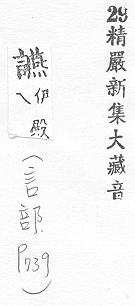 29精嚴新集大藏音
讌
伊殿
(言部
P739)